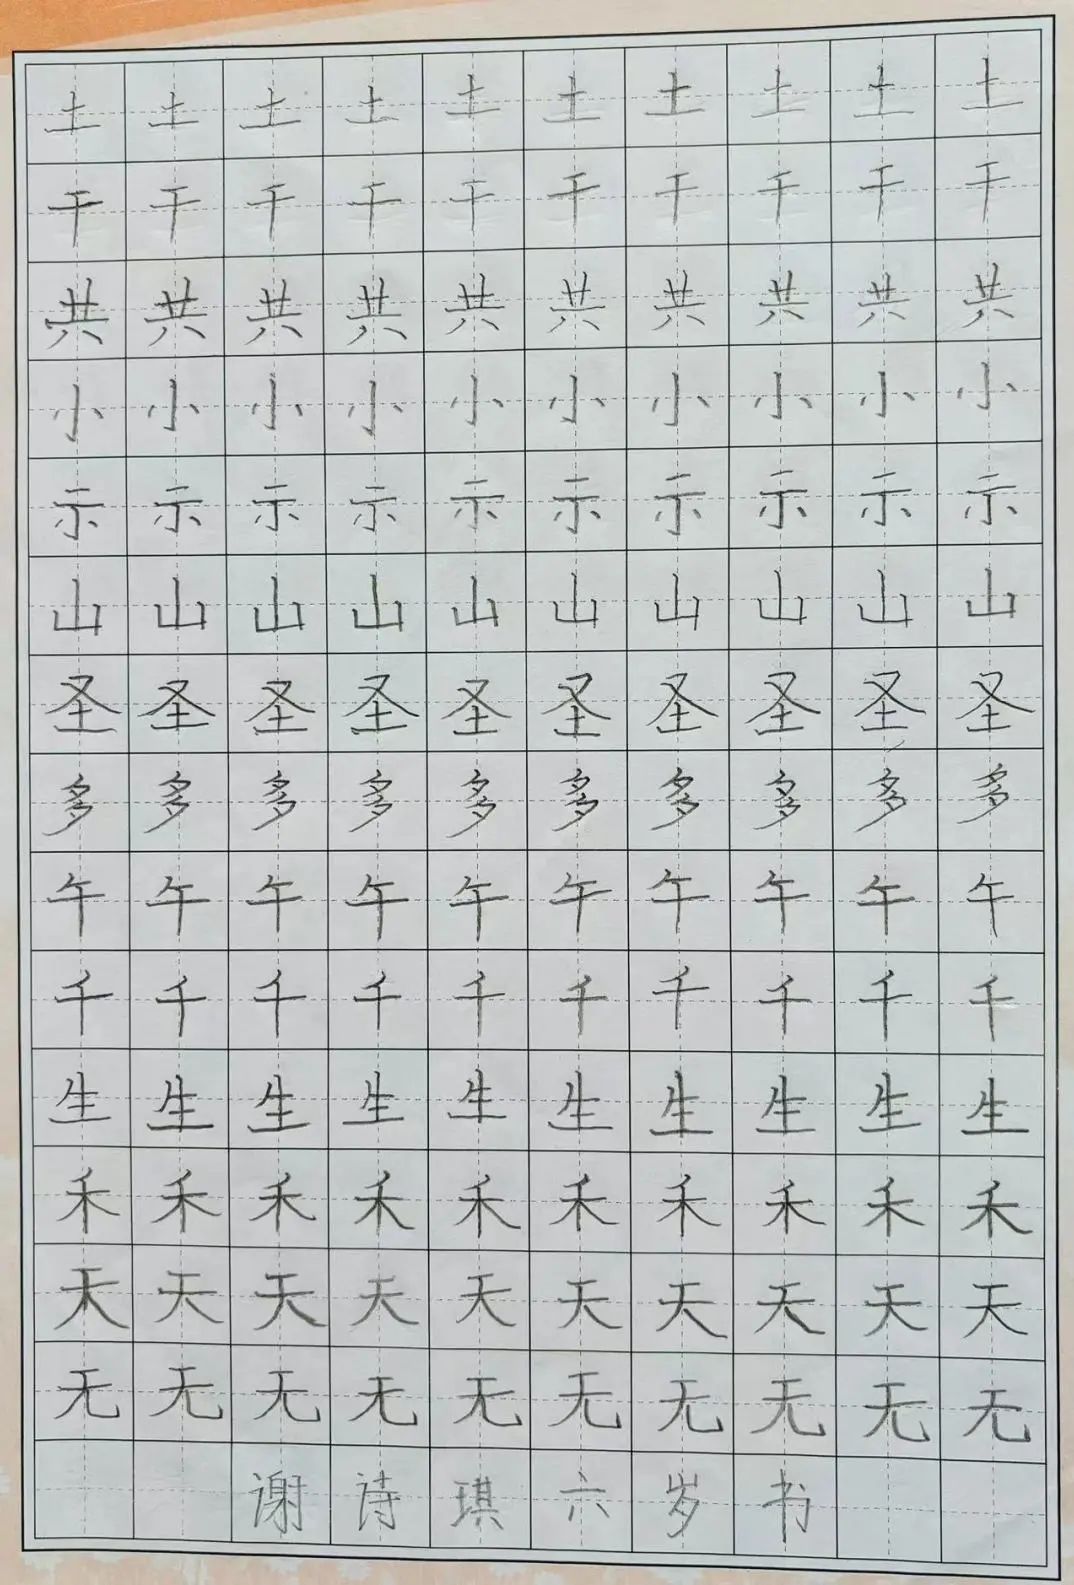 土土土土土土土土土土
干干干干干干干干干干
共共共共共共共共共共
小小小小小小小小小小
示示示示示示示示示示
山山山山山山山山山山
圣圣圣圣圣圣圣圣圣圣
多多多多多多多多多多
午午午午午午午午午午
千千千千千千千千千千
生生生生生生生生生生
禾禾禾禾禾禾禾禾禾禾
天天天天天天天天天天
无无无无无无无无无无
谢诗琪六岁书